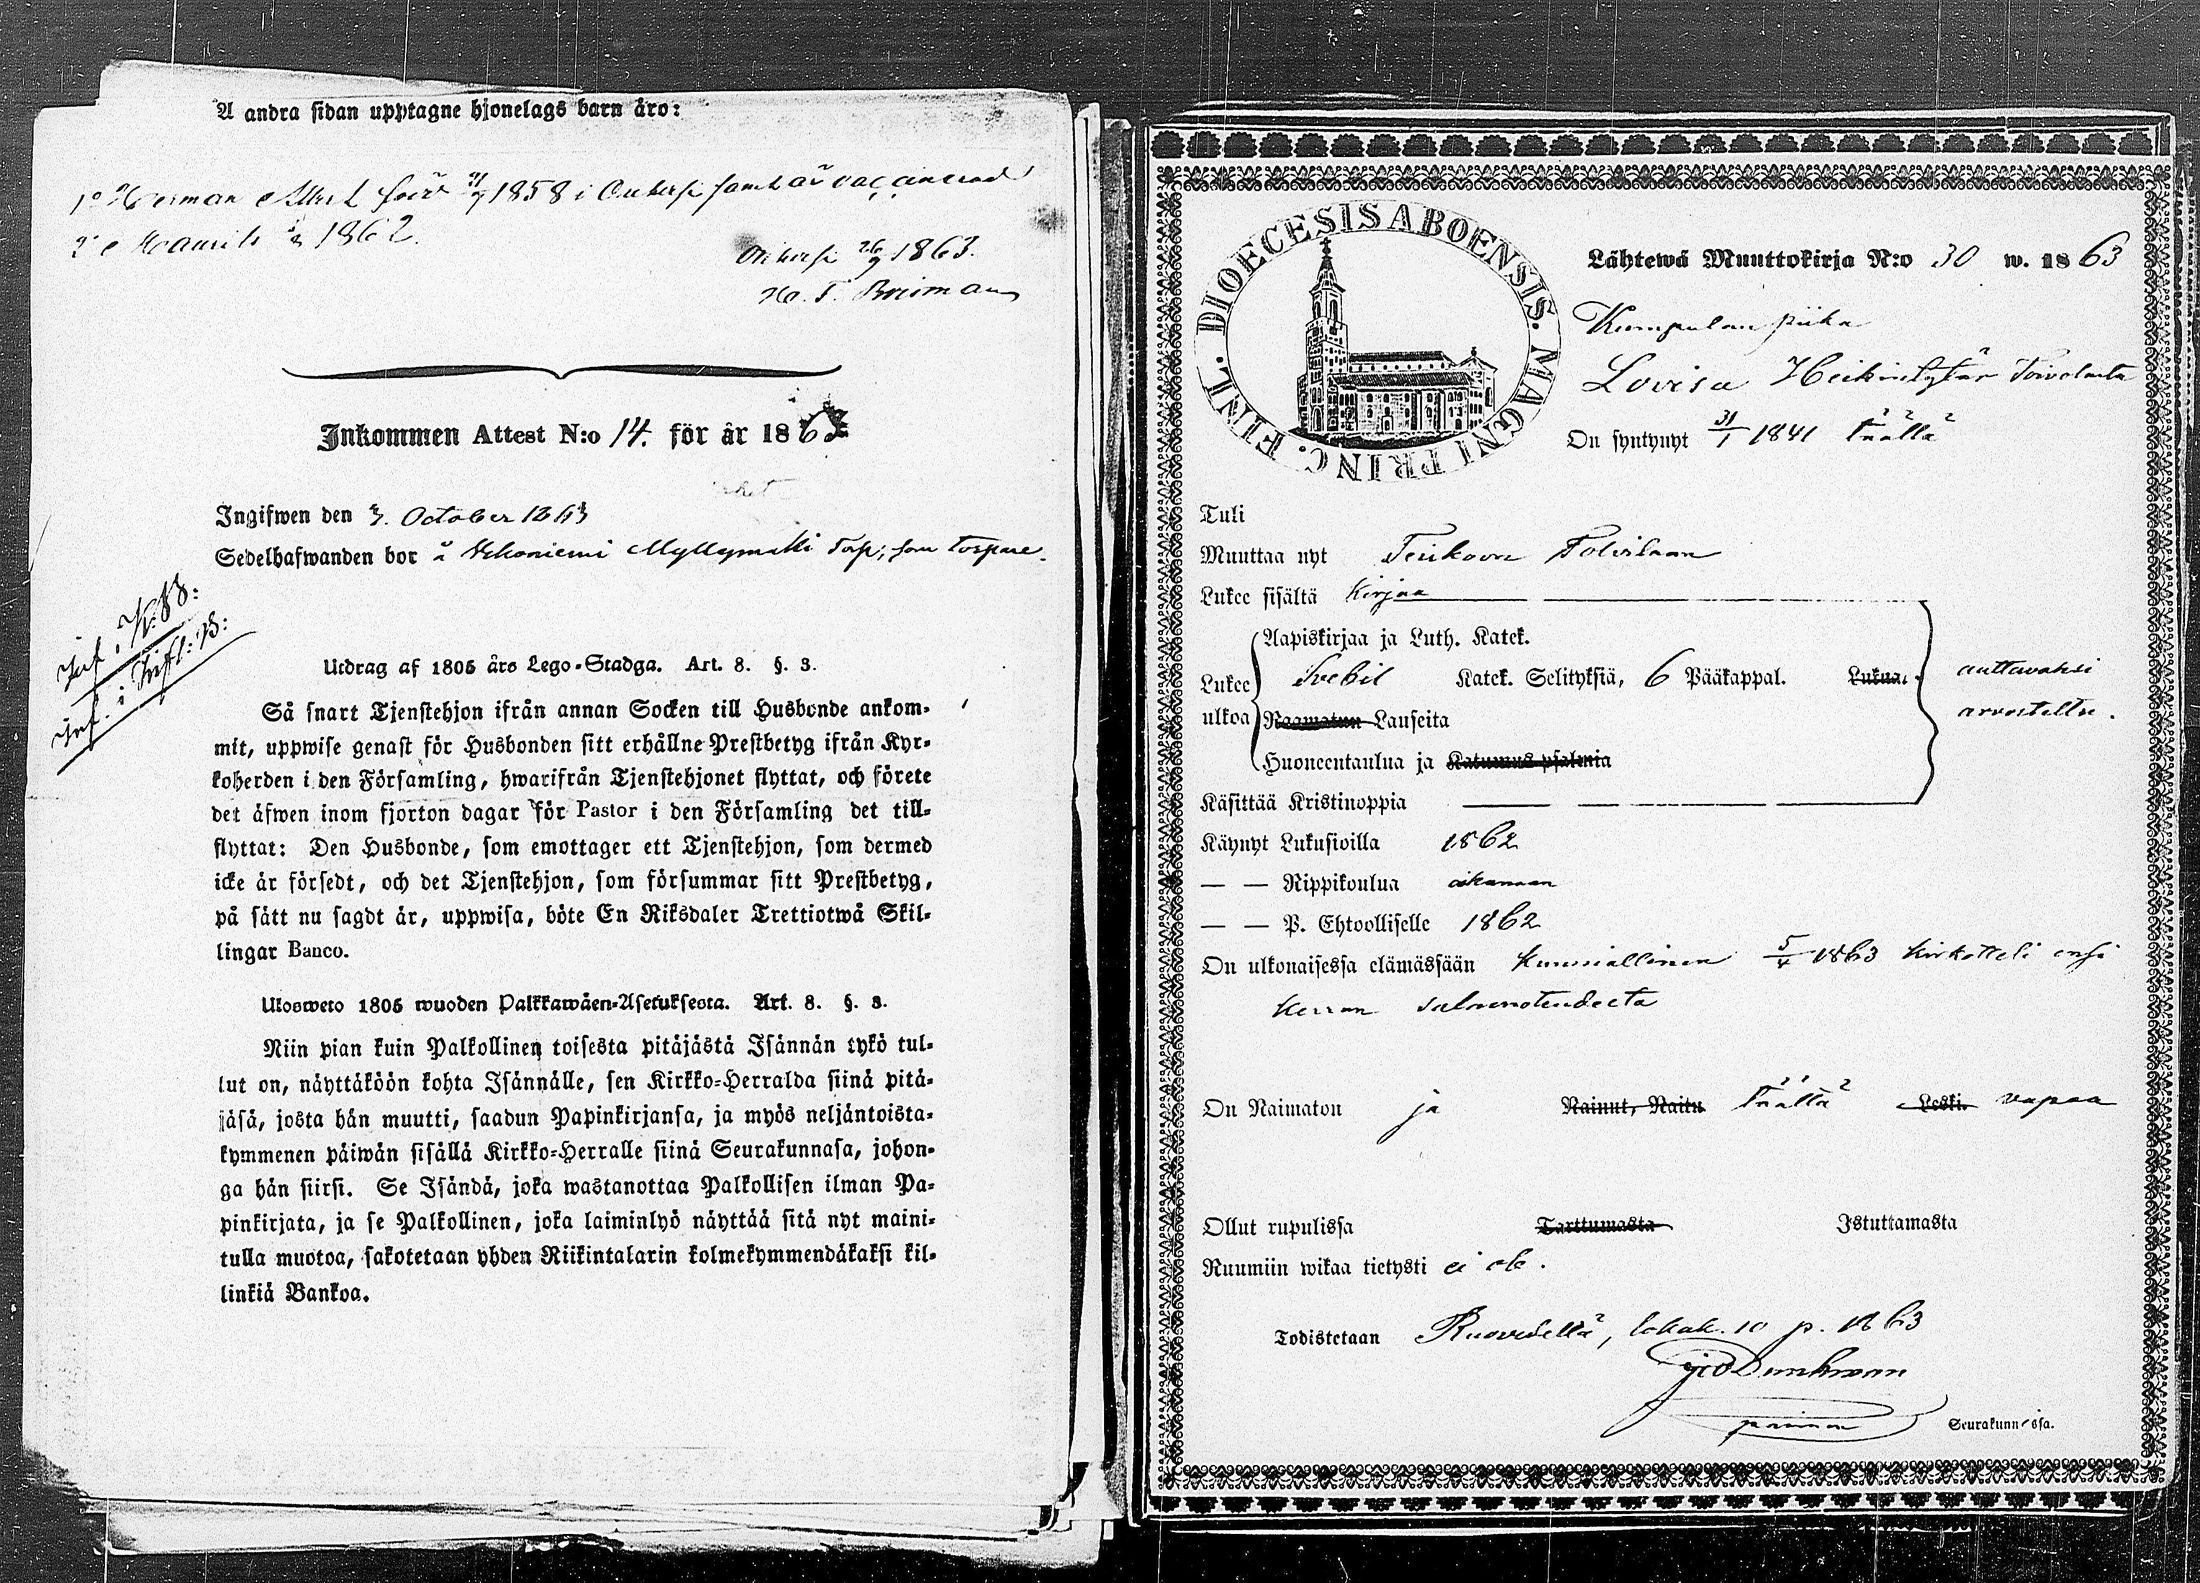 Å andra sidan upptagne hjonelags barn äro:
1o Herman Albert född 1858 i Onkersi samt är vaccinerad
2o Maurits 1862.
Onkersi 26/9 1863.
Inkommen Attest N:o 14. för år 1863
Ingifwen den 3. October 1863
Sedelhafwanden bor å Myllymäki Torp, som torpare.
Inf. i K.B:
Inf. i Infl: B:
Utdrag af 1805 års Lego-Stadga. Art. 8. §. 3.
Så snart Tjenstehjon ifrån annan Socken till Husbonde ankom-
mit, uppwise genast för Husbonden sitt erhållne Prestbetyg ifrån Kyr-
koherden i den Församling, hwarifrån Tjenstehjonet flyttat, och förete
det äfwen inom fjorton dagar för Pastor i den Församling det till-
flyttat: Den Husbonde, som emottager ett Tjenstehjon, som dermed
icke är försedt, och det Tjenstehjon, som försummar sitt Prestbetyg,
på sätt nu sagdt är, uppwisa, böte En Riksdaler Trettiotwå Skil-
lingar Banco.
Ulosweto 1805 wuoden Palkkawäen-Asetuksesta. Art. 8. §. 3.
Niin pian kuin Palkollinen toisesta pitäjästä Isännän tykö tul-
lut on, näyttäköön kohta Isännälle, sen Kirkko-Herralda siinä pitä-
jäsä, josta hän muutti, saadun Papinkirjansa, ja myös neljäntoista-
kymmenen päiwän sisällä Kirkko-Herralle siinä Seurakunnasa, johon-
ga hän siirsi. Se Isändä, joka wastanottaa Palkollisen ilman Pa-
pinkirjata, ja se Palkollinen, joka laiminlyö näyttää sitä nyt maini-
tulla muotoa, sakotetaan yhden Riikintalarin kolmekymmendäkaksi kil-
linkiä Bankoa.
DIOECESIS ABOENSIS. MAGNI PRINC. FINL.
Lähtewä Muuttokirja N:o 30 w. 1863
Kumpulan piika
Lovisa Heikintytär Toivolasta
On syntynyt 31/1 1841 täällä
Tuli
Muuttaa nyt Teiskoon
Lukee sisältä Kirjaa
Aapiskirjaa ja Luth. Katek.
Lukee ulkoa Svebil Katek. Selityksiä, 6 Pääkappal. Lukua. auttavaksi
Raamatun Lauseita arvosteltu.
Huoneentaulua ja Katumus psalmia
Käsittää Kristinoppia
Käynyt Lukusioilla 1862
— — Rippikoulua aikanaan
— — P. Ehtoolliselle 1862
On ulkonaisessa elämässään kunniallinen 5/4 1863 kirkotteli ensi
kerran salavuoteudesta
On Naimaton ja Nainut, Naitu täällä Leski. vapaa
Ollut rupulissa Tarttumasta Istuttamasta
Ruumiin wikaa tietysti ei ole.
Todistetaan Ruovedellä, lokak. 10 p. 1863
Seurakunnassa.